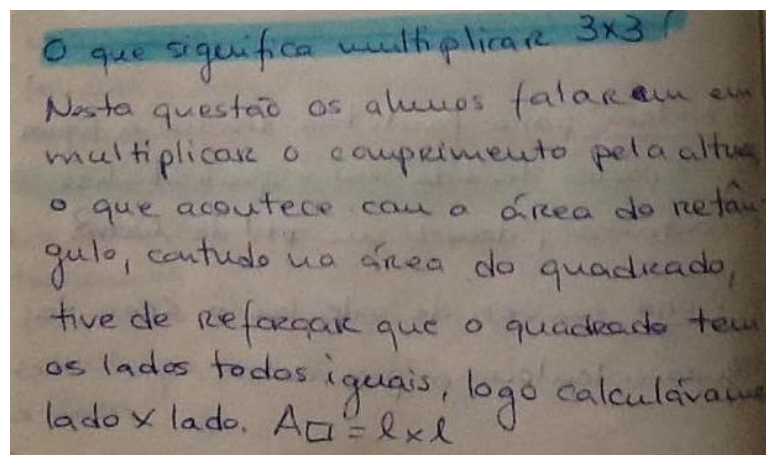 O que significa multiplicar 3x3?
Nesta questão os alunos falaram em
multiplicar o comprimento pela altura
o que acontece com a área do retân-
gulo, contudo na área do quadrado,
tive de reforçar que o quadrado tem
os lados todos iguais, logo calculávamos
lado x lado. A□ = l x l